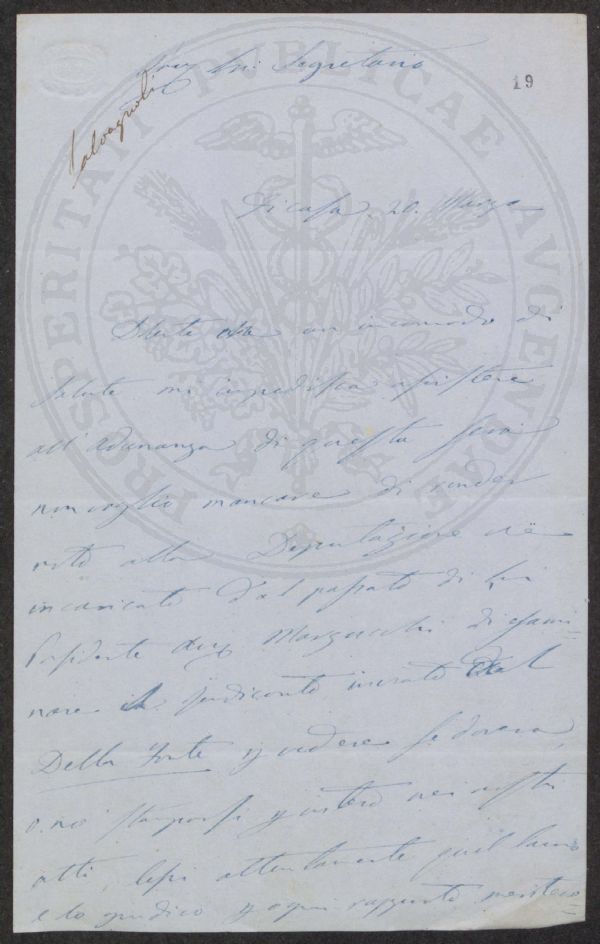 Sig Segretario
19
Salvagnoli
Di casa 20. Marzo
un incomodo di
salute mi impedisca assistere
all'adunanza di questa sera
non voglio mancare di render
noto alla Deputazione che
incaricato dal passato di Lei
Presidente Marzucchi di esami=
nare il rendiconto inviato dal
Della Fonte p vedere se doveva,
o nò stamparsi p intero nei nostri
atti, lessi attentamente quel lavoro
e lo giudico p ogni rapporto meritevo=
PROSPERITATI PVBLICAE AVGENDAE